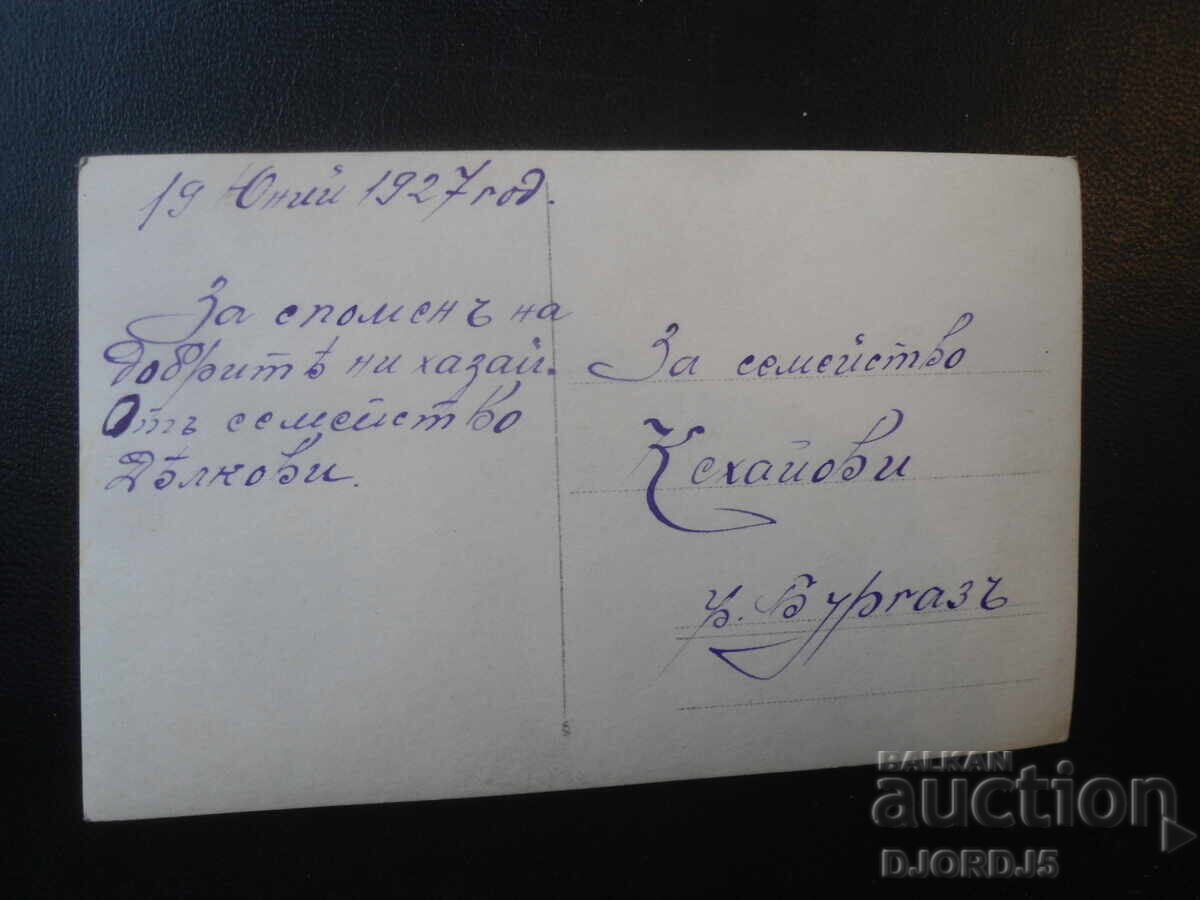 19 Юний 1927 год.
За споменъ на
добритѣ ни хазаи.
Отъ семейство
Дѣлкови.
За семейство
Кехайови
гр. Бургазъ
BALKAN
auction
DJORDJ5